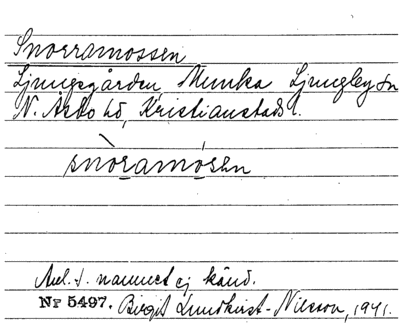 Snorramossen
Ljungsgården, Munka Ljungby sn
N. Åsbo hd, Kristianstads l.
snòramósen
Anl. t. namnet ej känd.
Nr 5497. Birgit Lundkvist-Nilsson, 1941.